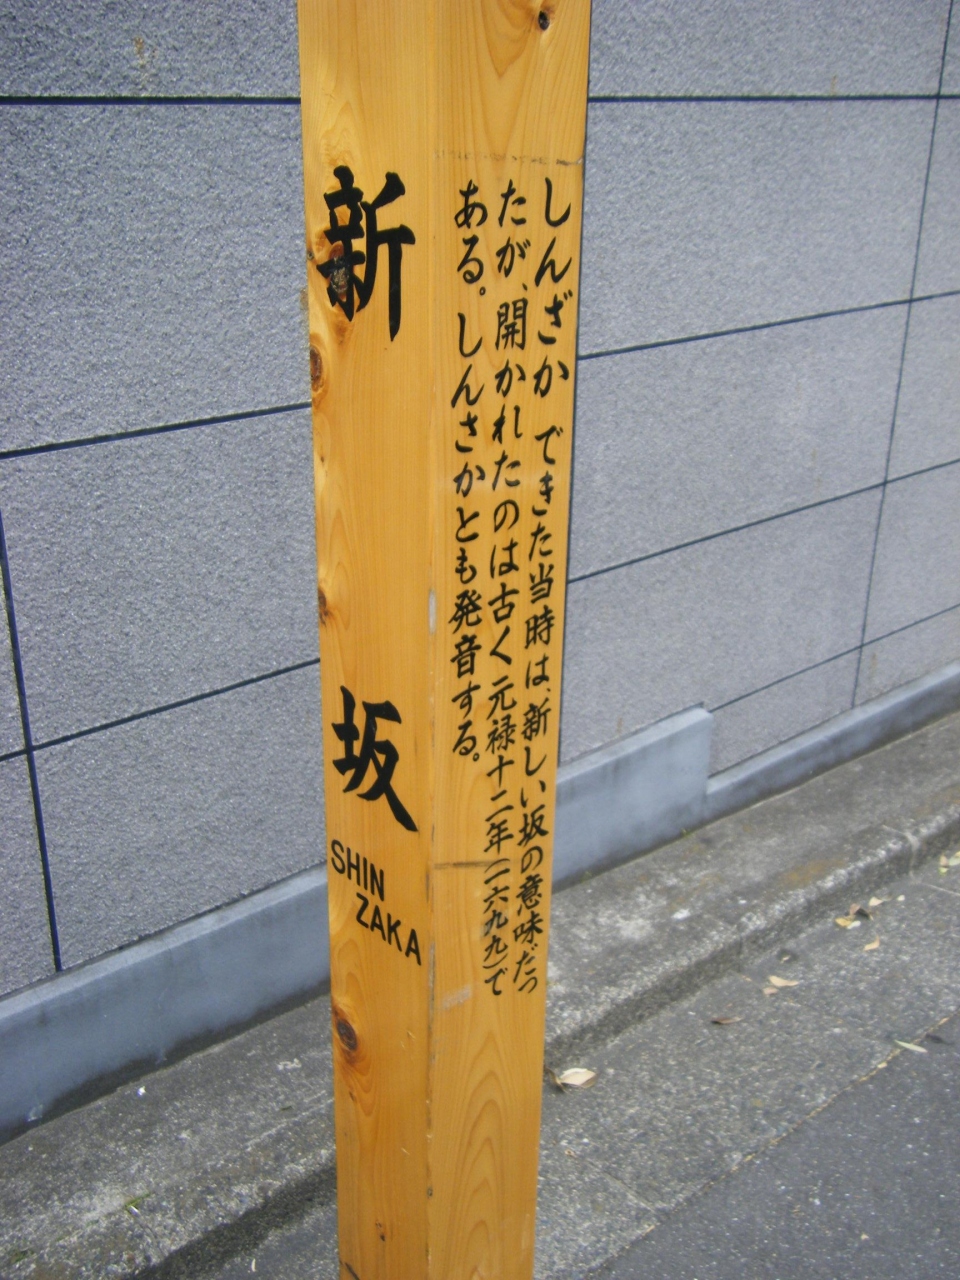 新坂
SHIN
ZAKA
しんざか できた当時は、新しい坂の意味だっ
たが、開かれたのは古く元禄十二年(一六九九)で
ある。しんさかとも発音する。